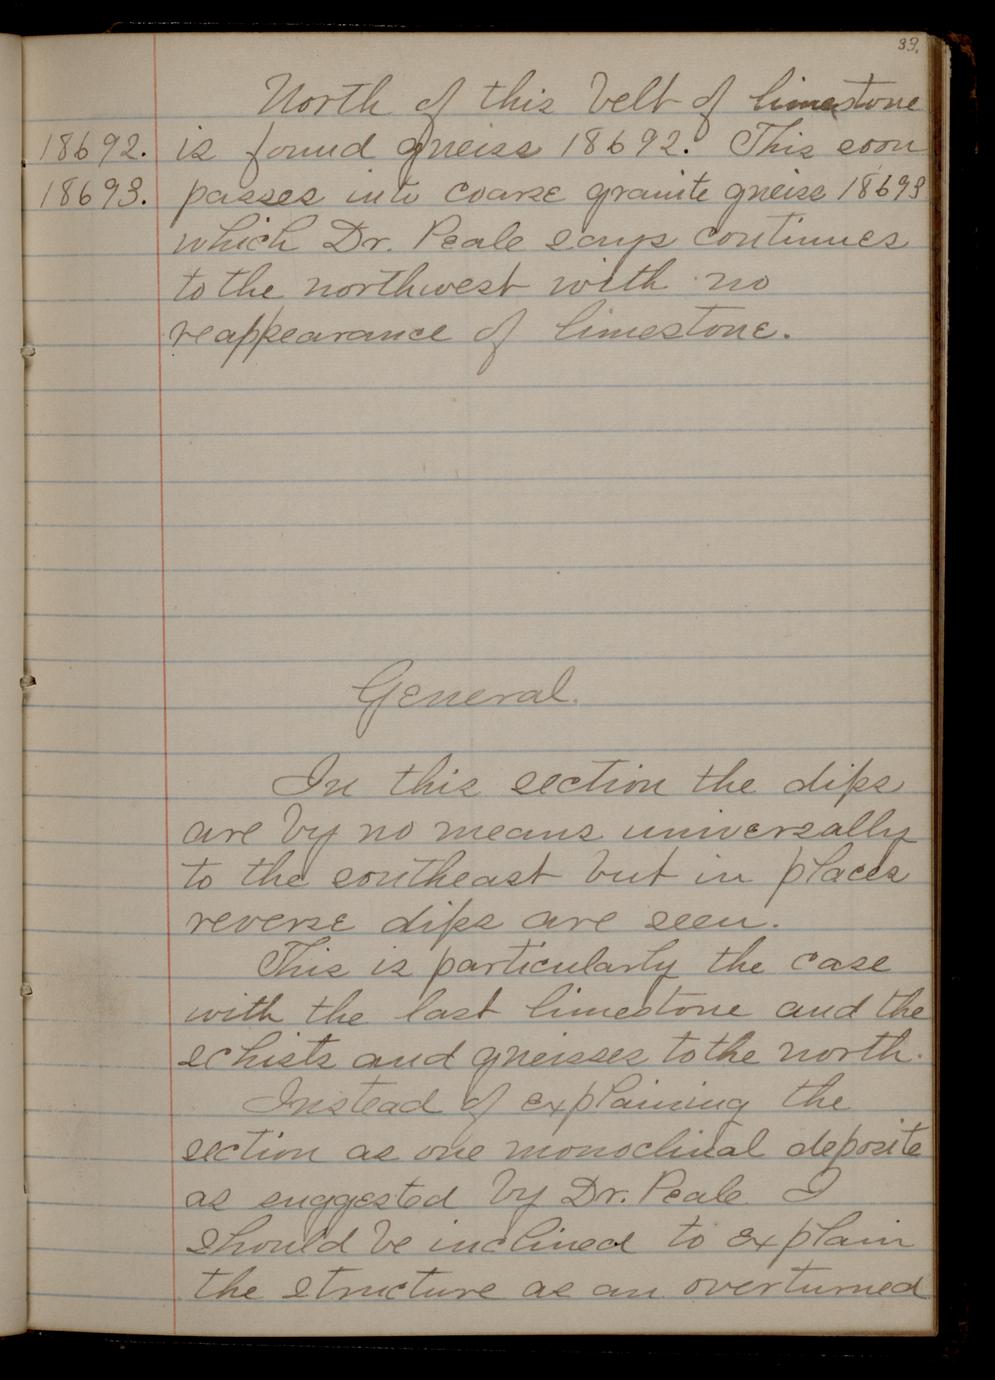 33.
North of this belt of limestone
18692. is found gneiss 18692. This soon
18693. passes into coarse granite gneiss 18693
which Dr. Peale says continues
to the northwest with no
reappearance of limestone.
General.
In this section the dips
are by no means universally
to the southeast but in places
reverse dips are seen.
This is particularly the case
with the last limestone and the
schists and gneisses to the north.
Instead of explaining the
section as one monoclinal deposite
as suggested by Dr. Peale I
should be inclined to explain
the structure as an overturned